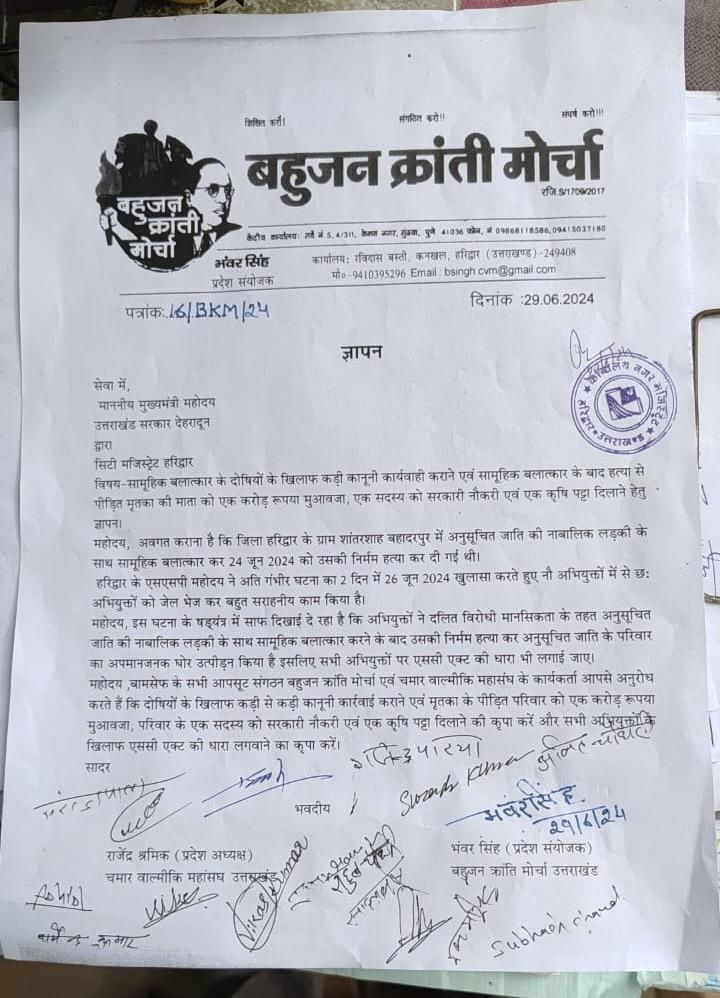 शिक्षित करो!
संगठित करो!!
संघर्ष करो!!!
बहुजन क्रांति मोर्चा
रजि.S/1709/2017
बहुजन
क्रांति
मोर्चा
केंद्रीय कार्यालयः सर्वे नं 5, 4/311, केशव नगर, मुंढवा, पुणे 41036 फोन, नं 09868118586,09415037180
भंवर सिंह
प्रदेश संयोजक
कार्यालय: रविदास बस्ती, कनखल, हरिद्वार (उत्तराखण्ड)-249408
मो०-9410395296 Email : bsingh.cvm@gmail.com
पत्रांक: 16/BKM/24
दिनांक :29.06.2024
ज्ञापन
कार्यालय नगर मजिस्ट्रेट
हरिद्वार उत्तराखण्ड
सेवा में,
माननीय मुख्यमंत्री महोदय
उत्तराखंड सरकार देहरादून
द्वारा
सिटी मजिस्ट्रेट हरिद्वार
विषय-सामूहिक बलात्कार के दोषियों के खिलाफ कड़ी कानूनी कार्यवाही कराने एवं सामूहिक बलात्कार के बाद हत्या से
पीड़ित मृतका की माता को एक करोड़ रूपया मुआवजा, एक सदस्य को सरकारी नौकरी एवं एक कृषि पट्टा दिलाने हेतु
ज्ञापन।
महोदय, अवगत कराना है कि जिला हरिद्वार के ग्राम शांतरशाह बहादरपुर में अनुसूचित जाति की नाबालिक लड़की के
साथ सामूहिक बलात्कार कर 24 जून 2024 को उसकी निर्मम हत्या कर दी गई थी।
हरिद्वार के एसएसपी महोदय ने अति गंभीर घटना का 2 दिन में 26 जून 2024 खुलासा करते हुए नौ अभियुक्तों में से छः
अभियुक्तों को जेल भेज कर बहुत सराहनीय काम किया है।
महोदय, इस घटना के षड्यंत्र में साफ दिखाई दे रहा है कि अभियुक्तों ने दलित विरोधी मानसिकता के तहत अनुसूचित
जाति की नाबालिक लड़की के साथ सामूहिक बलात्कार करने के बाद उसकी निर्मम हत्या कर अनुसूचित जाति के परिवार
का अपमानजनक घोर उत्पीड़न किया है इसलिए सभी अभियुक्तों पर एससी एक्ट की धारा भी लगाई जाए।
महोदय ,बामसेफ के सभी आपसूट संगठन बहुजन क्रांति मोर्चा एवं चमार वाल्मीकि महासंघ के कार्यकर्ता आपसे अनुरोध
करते हैं कि दोषियों के खिलाफ कड़ी से कड़ी कानूनी कार्रवाई कराने एवं मृतका के पीड़ित परिवार को एक करोड़ रूपया
मुआवजा, परिवार के एक सदस्य को सरकारी नौकरी एवं एक कृषि पट्टा दिलाने की कृपा करें और सभी अभियुक्तों के
खिलाफ एससी एक्ट की धारा लगवाने का कृपा करें।
सादर
भवदीय
Suresh Kumar
भंवरसिंह
29/6/24
राजेंद्र श्रमिक (प्रदेश अध्यक्ष)
चमार वाल्मीकि महासंघ उत्तराखंड
भंवर सिंह (प्रदेश संयोजक)
बहुजन क्रांति मोर्चा उत्तराखंड
Vikas Kumar
Subhash Chand